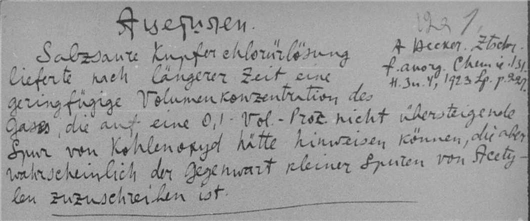 Salzsaure Kupferchlorürlösung
lieferte nach längerer Zeit eine
geringfügige Volumenkonzentration des
Gases, die auf eine 0,1 Vol-Proz. nicht übersteigende
Spur von Kohlenoxyd hätte hinweisen können, die aber
wahrscheinlich der Gegenwart kleiner Spuren von Acety
len zuzuschreiben ist.
A Hecker. Ztschr.
f. anorg. Chemie 131
H. 3u.4, 1923